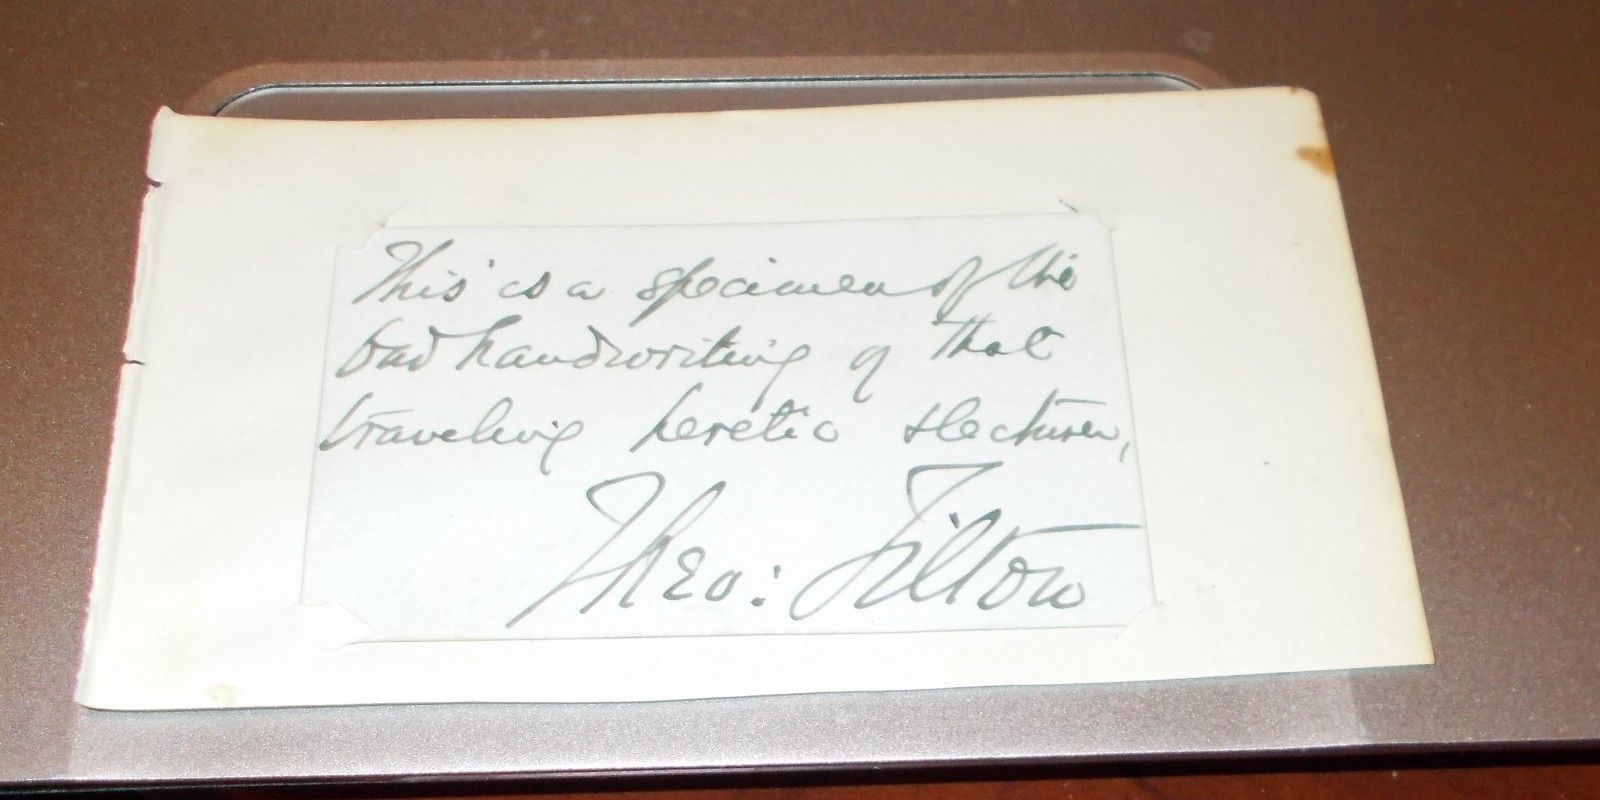 This is a specimen of the
bad handwriting of that
traveling heretic & lecturer,
Theo: Tilton